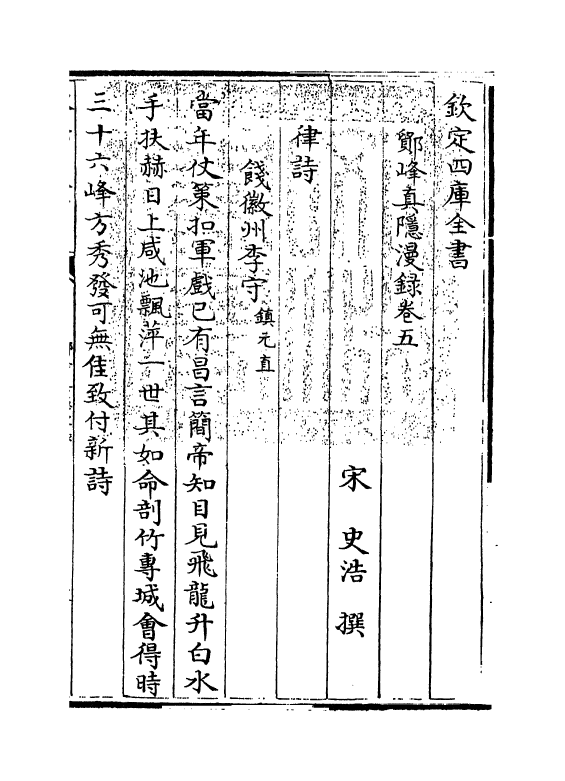 欽定四庫全書
鄮峰真隱漫録卷五
宋 史浩 撰
律詩
餞徽州李守鎮元直
當年仗策扣軍戲已有昌言簡帝知目見飛龍升白水
手扶赫日上咸池飄萍一世其如命剖竹專城會得時
三十六峰方秀發可無佳致付新詩